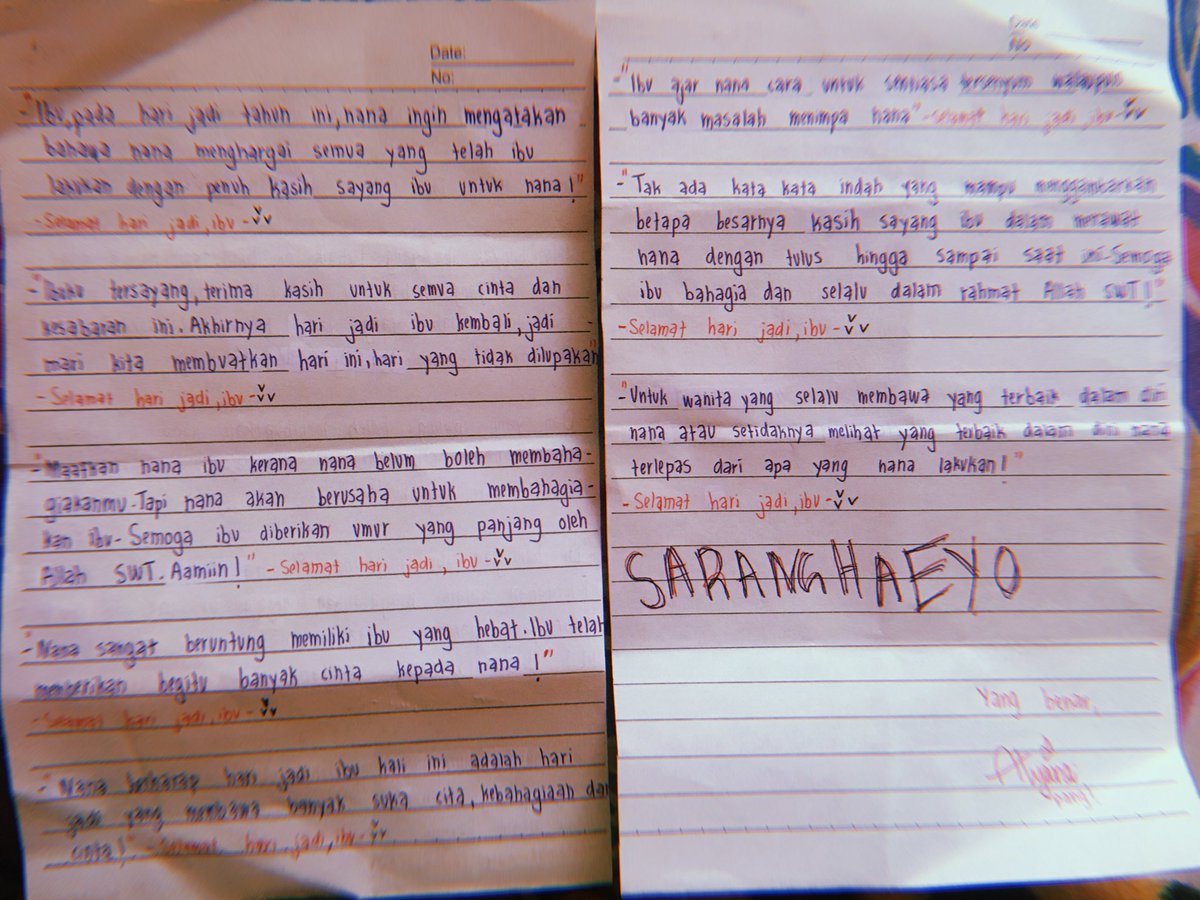 Date:
No:
-"Ibu, pada hari jadi tahun ini, nana ingin mengatakan
bahawa nana menghargai semua yang telah ibu
lakukan dengan penuh kasih sayang ibu untuk nana!"
-Selamat hari jadi, ibu-
-"Ibuku tersayang, terima kasih untuk semua cinta dan
kesabaran ini. Akhirnya hari jadi ibu kembali, jadi
mari kita membuatkan hari ini, hari yang tidak dilupakan"
-Selamat hari jadi, ibu-
-"Maafkan nana ibu kerana nana belum boleh membaha-
giakanmu. Tapi nana akan berusaha untuk membahagia-
kan ibu. Semoga ibu diberikan umur yang panjang oleh
Allah SWT. Aamiin!" -Selamat hari jadi, ibu-
-"Nana sangat beruntung memiliki ibu yang hebat. Ibu telah
memberikan begitu banyak cinta kepada nana!"
-Selamat hari jadi, ibu-
-"Nana berharap hari jadi ibu kali ini adalah hari
jadi yang membawa banyak suka cita, kebahagiaan dan
cinta!" -Selamat hari jadi, ibu-
Date
No
-"Ibu ajar nana cara untuk sentiasa tersenyum walaupun
banyak masalah menimpa nana" -selamat hari jadi, ibu-
-"Tak ada kata kata indah yang mampu menggambarkan
betapa besarnya kasih sayang ibu dalam merawat
nana dengan tulus hingga sampai saat ini. Semoga
ibu bahagia dan selalu dalam rahmat Allah SWT!"
-Selamat hari jadi, ibu-
-"Untuk wanita yang selalu membawa yang terbaik dalam diri
nana atau setidaknya melihat yang terbaik dalam diri nana
terlepas dari apa yang nana lakukan!"
-Selamat hari jadi, ibu-
SARANGHAEYO
Yang benar,